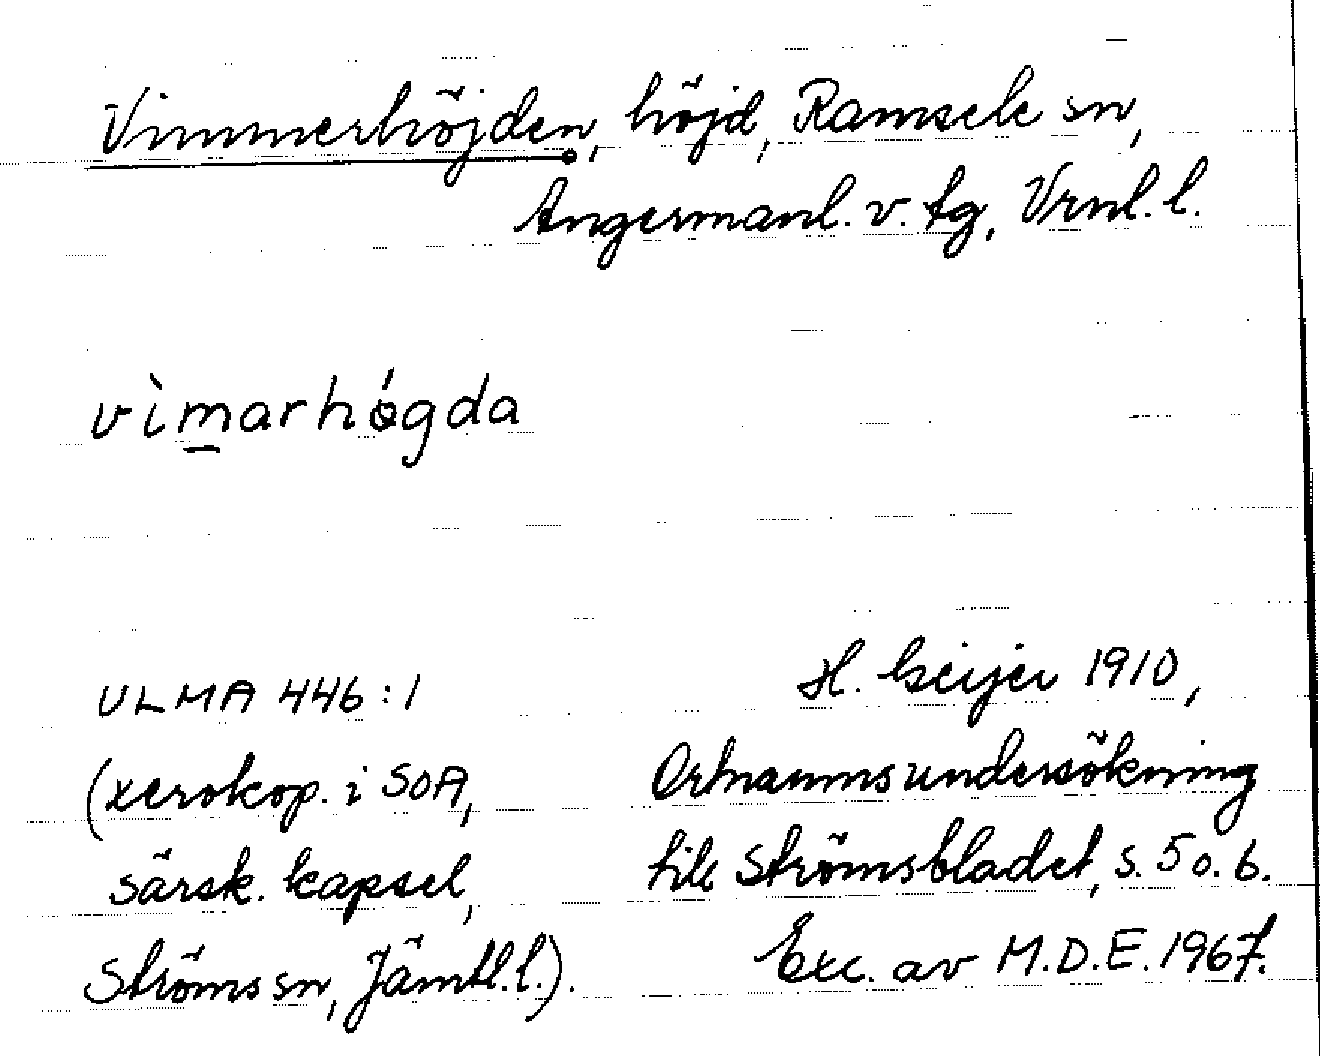 Vimmerhöjden, höjd, Ramsele sn,
Ångermanl. v. tg, Vrnl. l.
vìmarhǿgda
ULMA 446:1
(xerokop. i SOA,
särsk. kapsel,
Ströms sn, Jämtl.l.).
H. Geijer 1910,
Ortnamnsundersökning
till Strömsbladet, s. 5 o. 6.
Exc. av M.D.E. 1967.